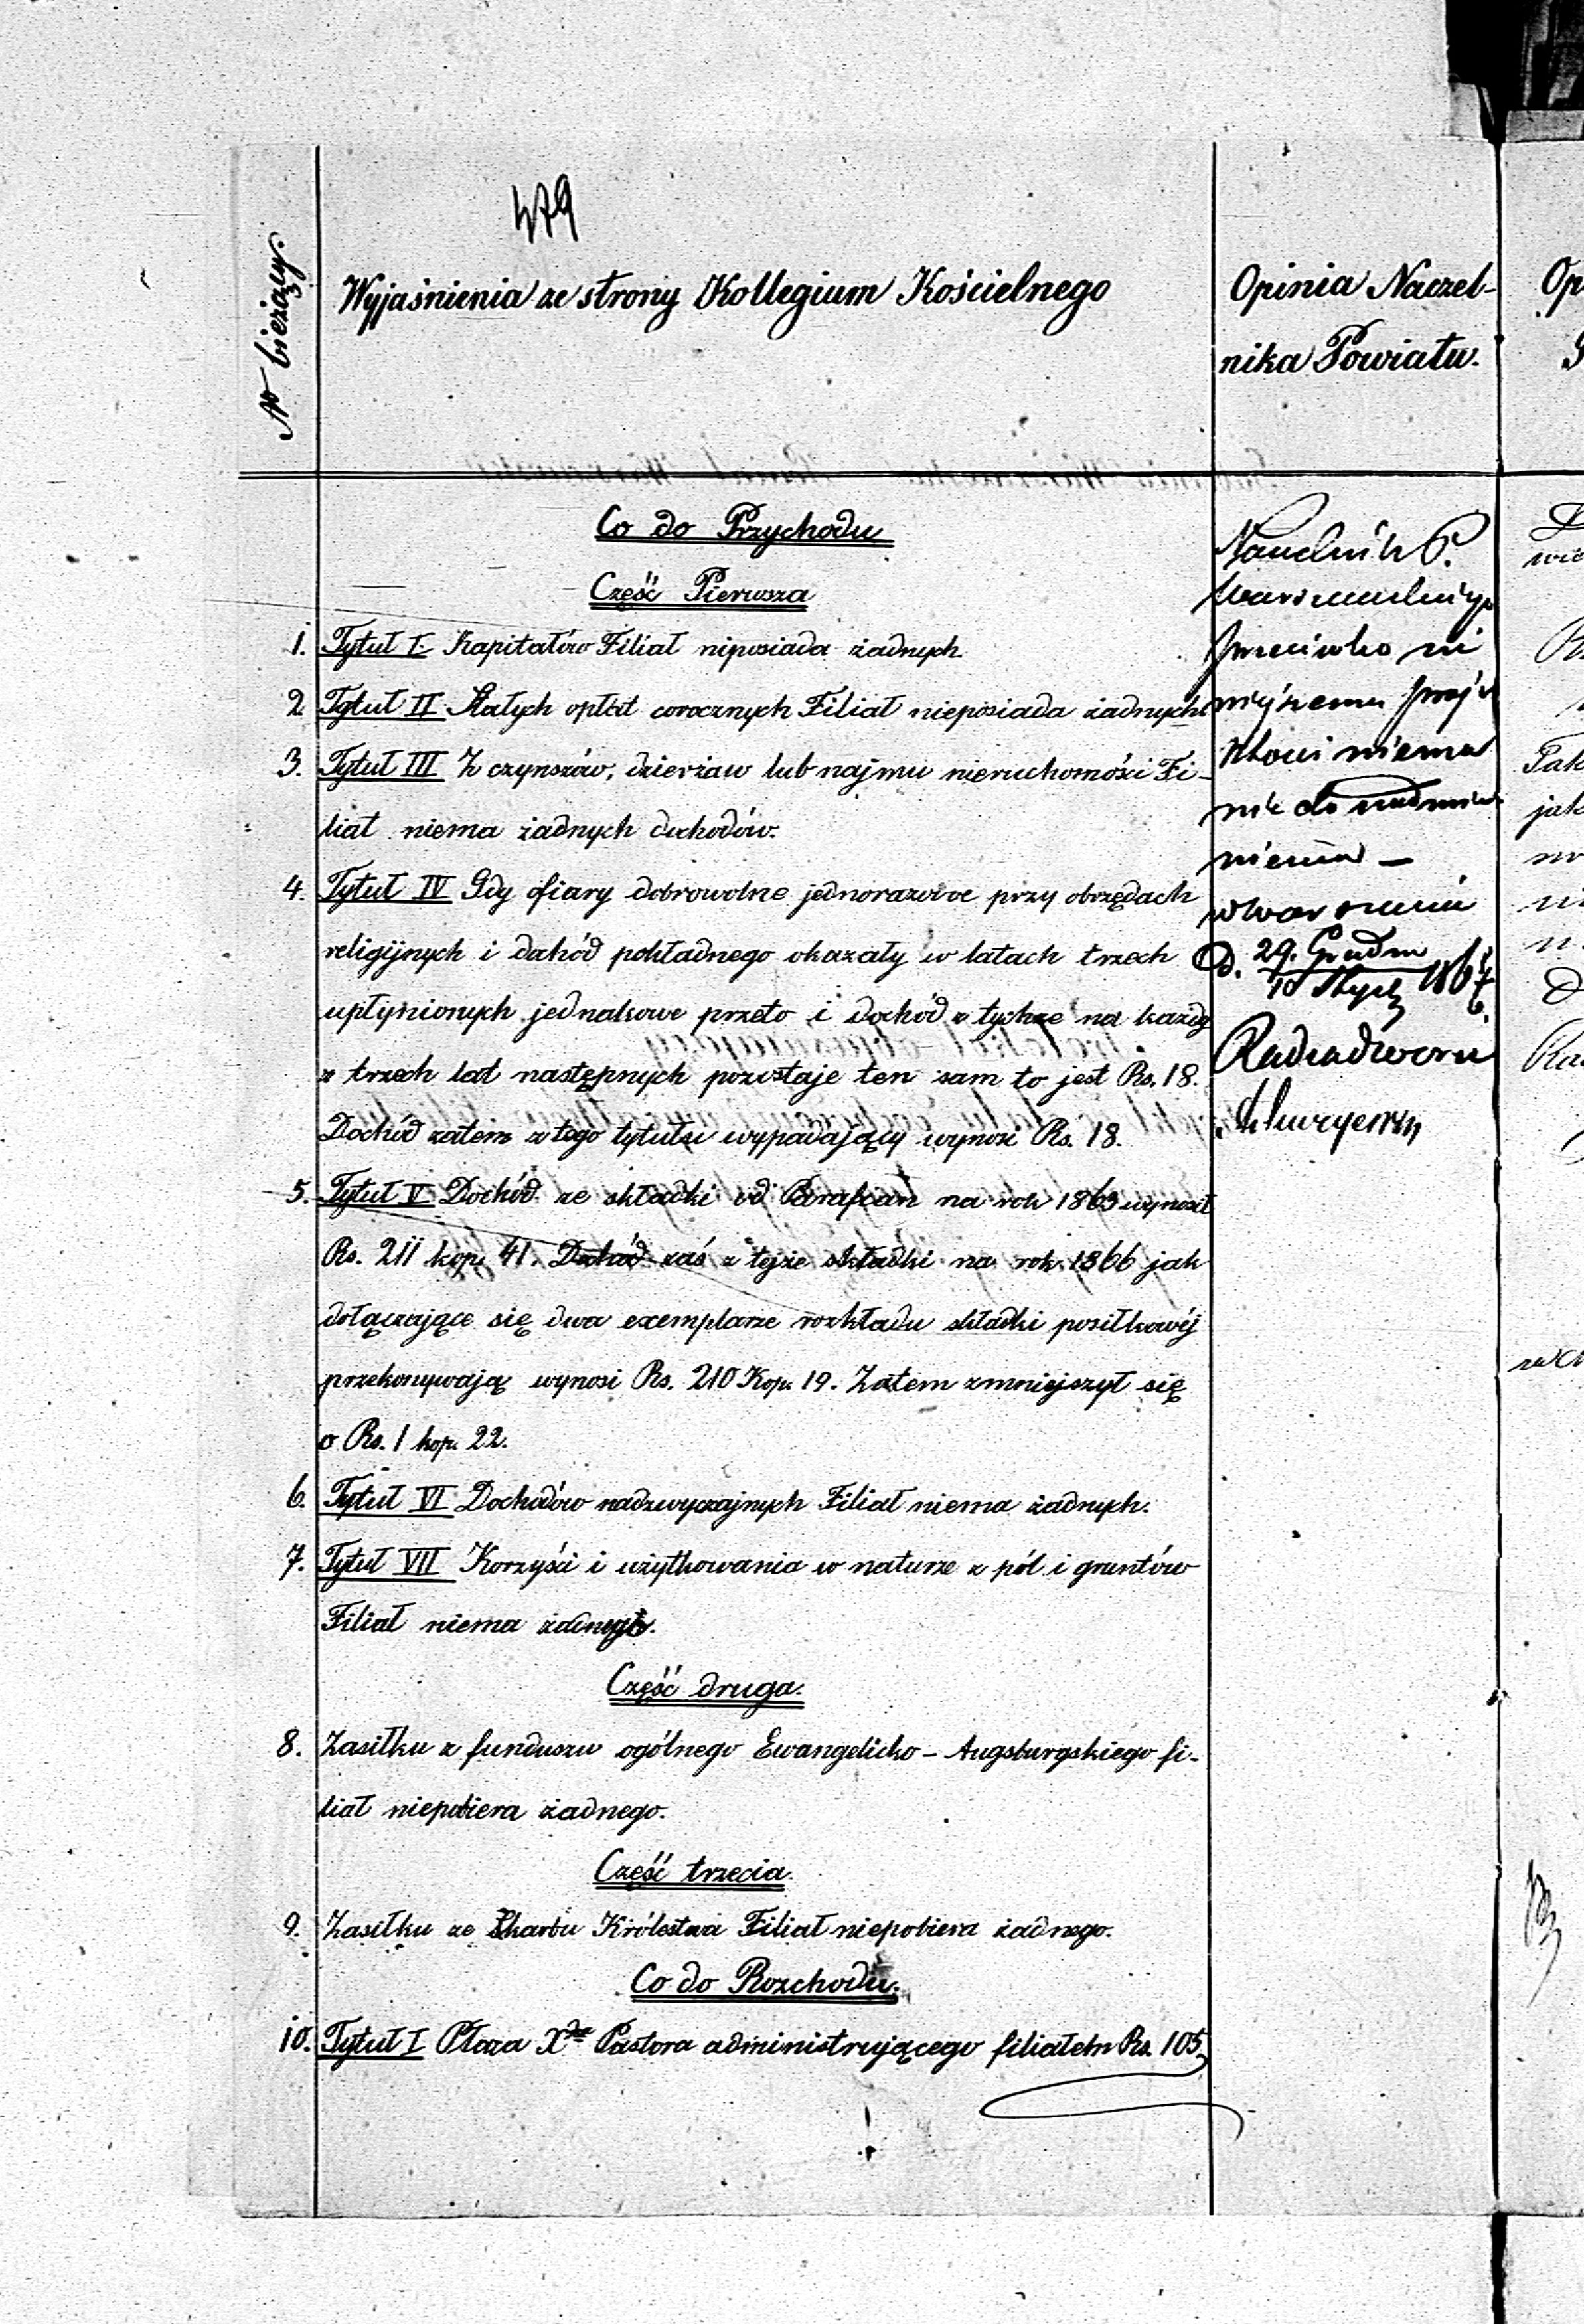 479
N bieżący.
Wyjaśnienia ze strony Kollegium Kościelnego
Opinia Naczel-
nika Powiatu.
Co do Przychodu
Część Pierwsza
1. Tytuł I. Kapitałów Filiał niposiada żadnych.
2. Tytuł II Stałych opłat corocznych Filiał nieposiada żadnych
3. Tytuł III Z czynszów, dzierżaw lub najmu nieruchomości Fi-
liał niema żadnych dochodów.
4. Tytuł IV Gdy ofiary dobrowolne jednorazowe przy obrzędach
religijnych i dochód pokładnego okazały w latach trzech
upłynionych jednakowe przeto i dochód z tychże na każdy
z trzech lat następnych pozostaje ten sam to jest Rs. 18.
Dochód zatem z tego tytułu wypadający wynosi Rs. 18.
5. Tytuł V Dochód ze składki od Parafian na rok 1863 wynosił
Rs. 211 kop. 41. Dochód zaś z tejże składki na rok 1866 jak
dołączające się dwa exemplarze rozkładu składki posiłkowéj
przekonywają wynosi Rs. 210 Kop. 19. Zatem zmniejszył się
o Rs. 1 kop. 22.
6. Tytuł VI Dochodów nadzwyczajnych Filiał niema żadnych.
7. Tytuł VII Korzyści i użytkowania w naturze z pól i gruntów
Filiał niema żadnych.
Część druga.
8. Zasiłku z funduszu ogólnego Ewangelicko-Augsburgskiego fi-
liał niepobiera żadnego.
Część trzecia.
9. Zasiłku ze Skarbu Królestwa Filiał niepobiera żadnego.
Co do Rozchodu.
10. Tytuł I Płaca Xdza Pastora administrującego filiałem Rs. 105,
Naczelnik P.
Warszawskiego
przeciwko ni
niejszemu proje
ktowi niema
nic do nadmie
nienia –
w Warszawie
d. 29. Grudn
10 Stycz
Radca dworu